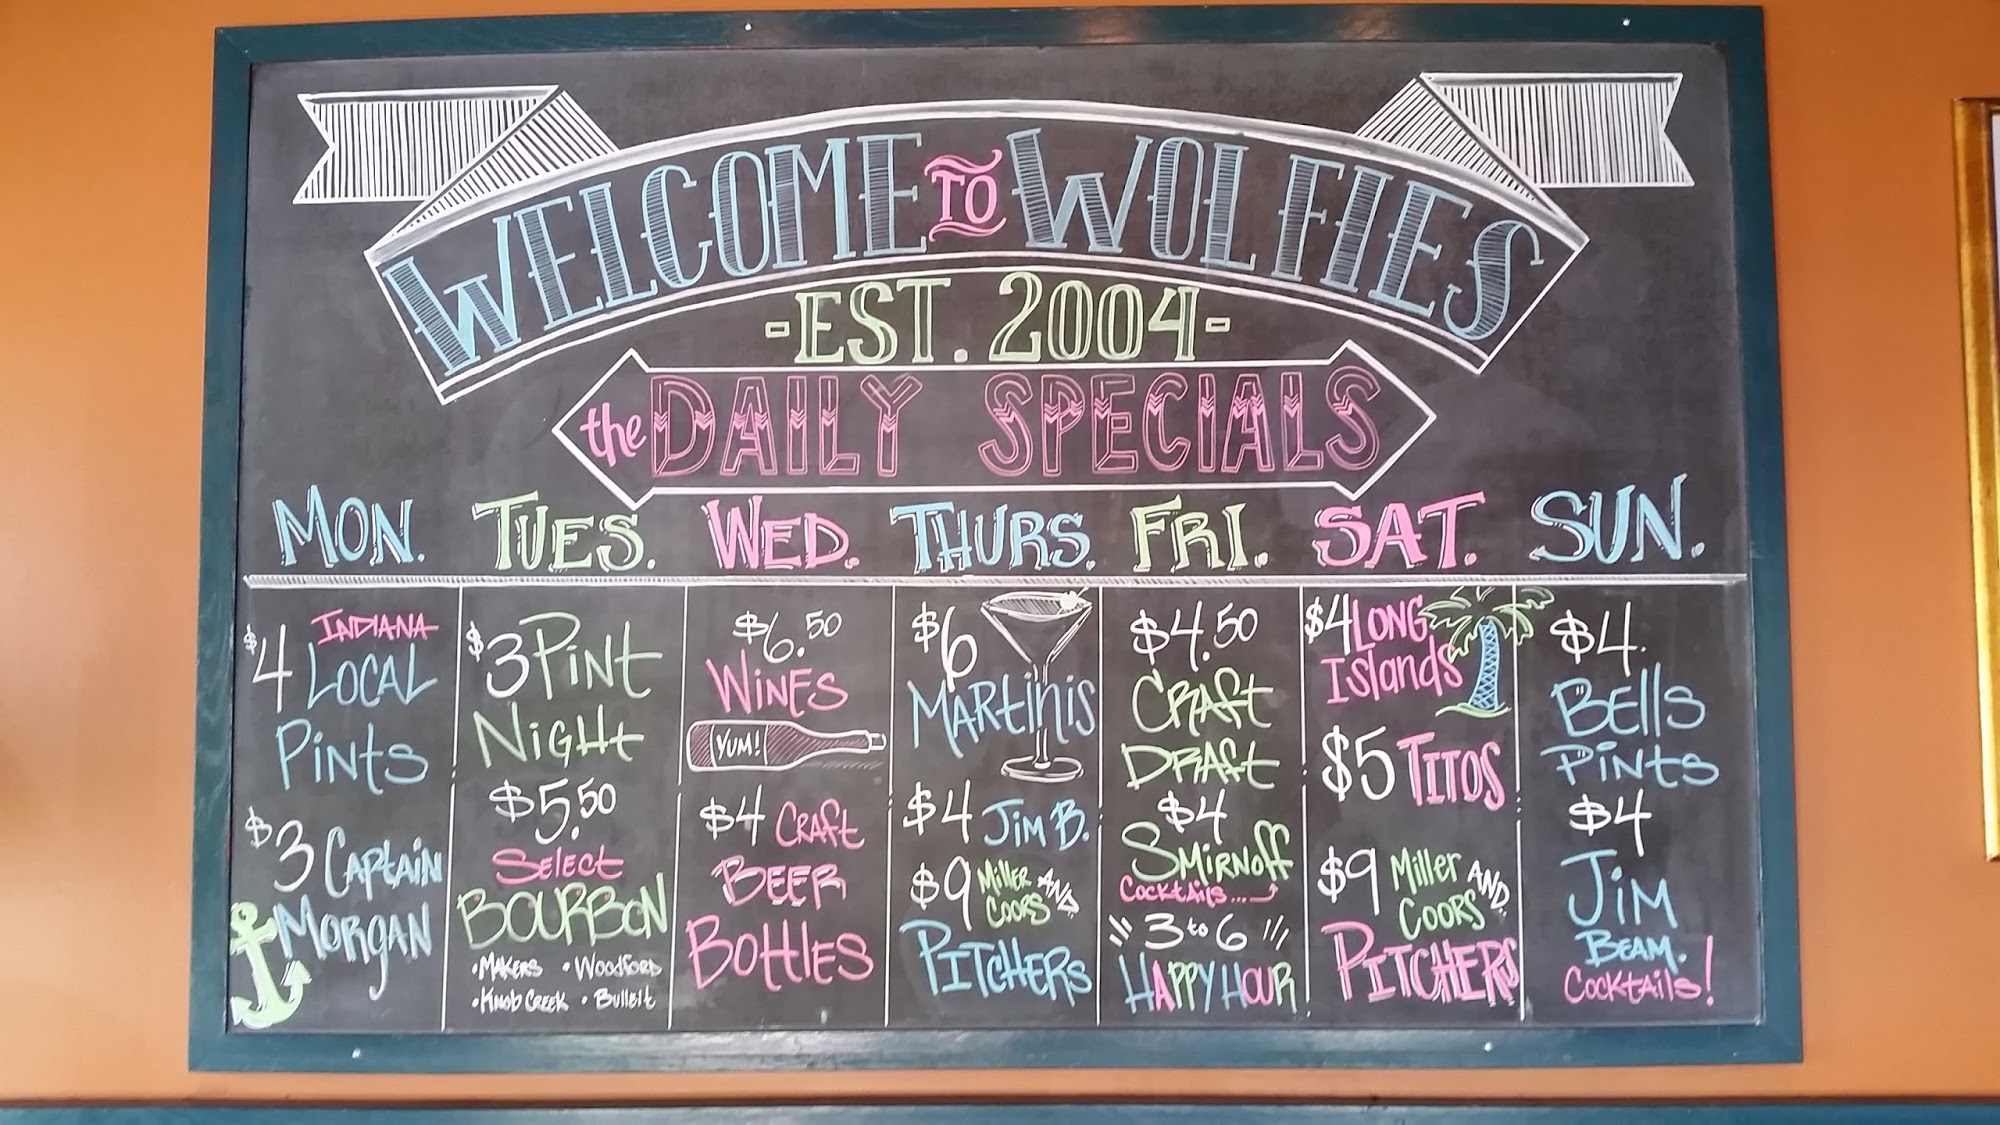 WELCOME TO WOLFIES
-EST. 2004-
the DAILY SPECIALS
MON.
$4 INDIANA
LOCAL
PINTS
$3 CAPTAIN
MORGAN
TUES.
$3 PINT
NIGHT
$5.50
SELECT
BOURBON
• MAKERS • WOODFORD
• KNOB CREEK • BULLEIT
WED.
$6.50
WINES
YUM!
$4 CRAFT
BEER
BOTTLES
THURS.
$6
MARTINIS
$4 JIM B.
$9 MILLER AND
COORS
PITCHERS
FRI.
$4.50
CRAFT
DRAFT
$4
SMIRNOFF
COCKTAILS...
3 to 6
HAPPY HOUR
SAT.
$4 LONG
ISlANdS
$5 TITOS
$9 MILLER AND
COORS
PITCHERS
SUN.
$4.
BELLS
PINTS
$4
JIM
BEAM.
COCKTAILS!